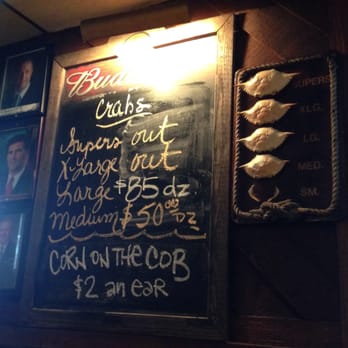 Crabs
Supers out
X-Large out
Large $85 dz
Medium $50.00 DZ
CORN ON THE COB
$2 an EAR
SUPERS
XLG.
LG.
MED.
SM.